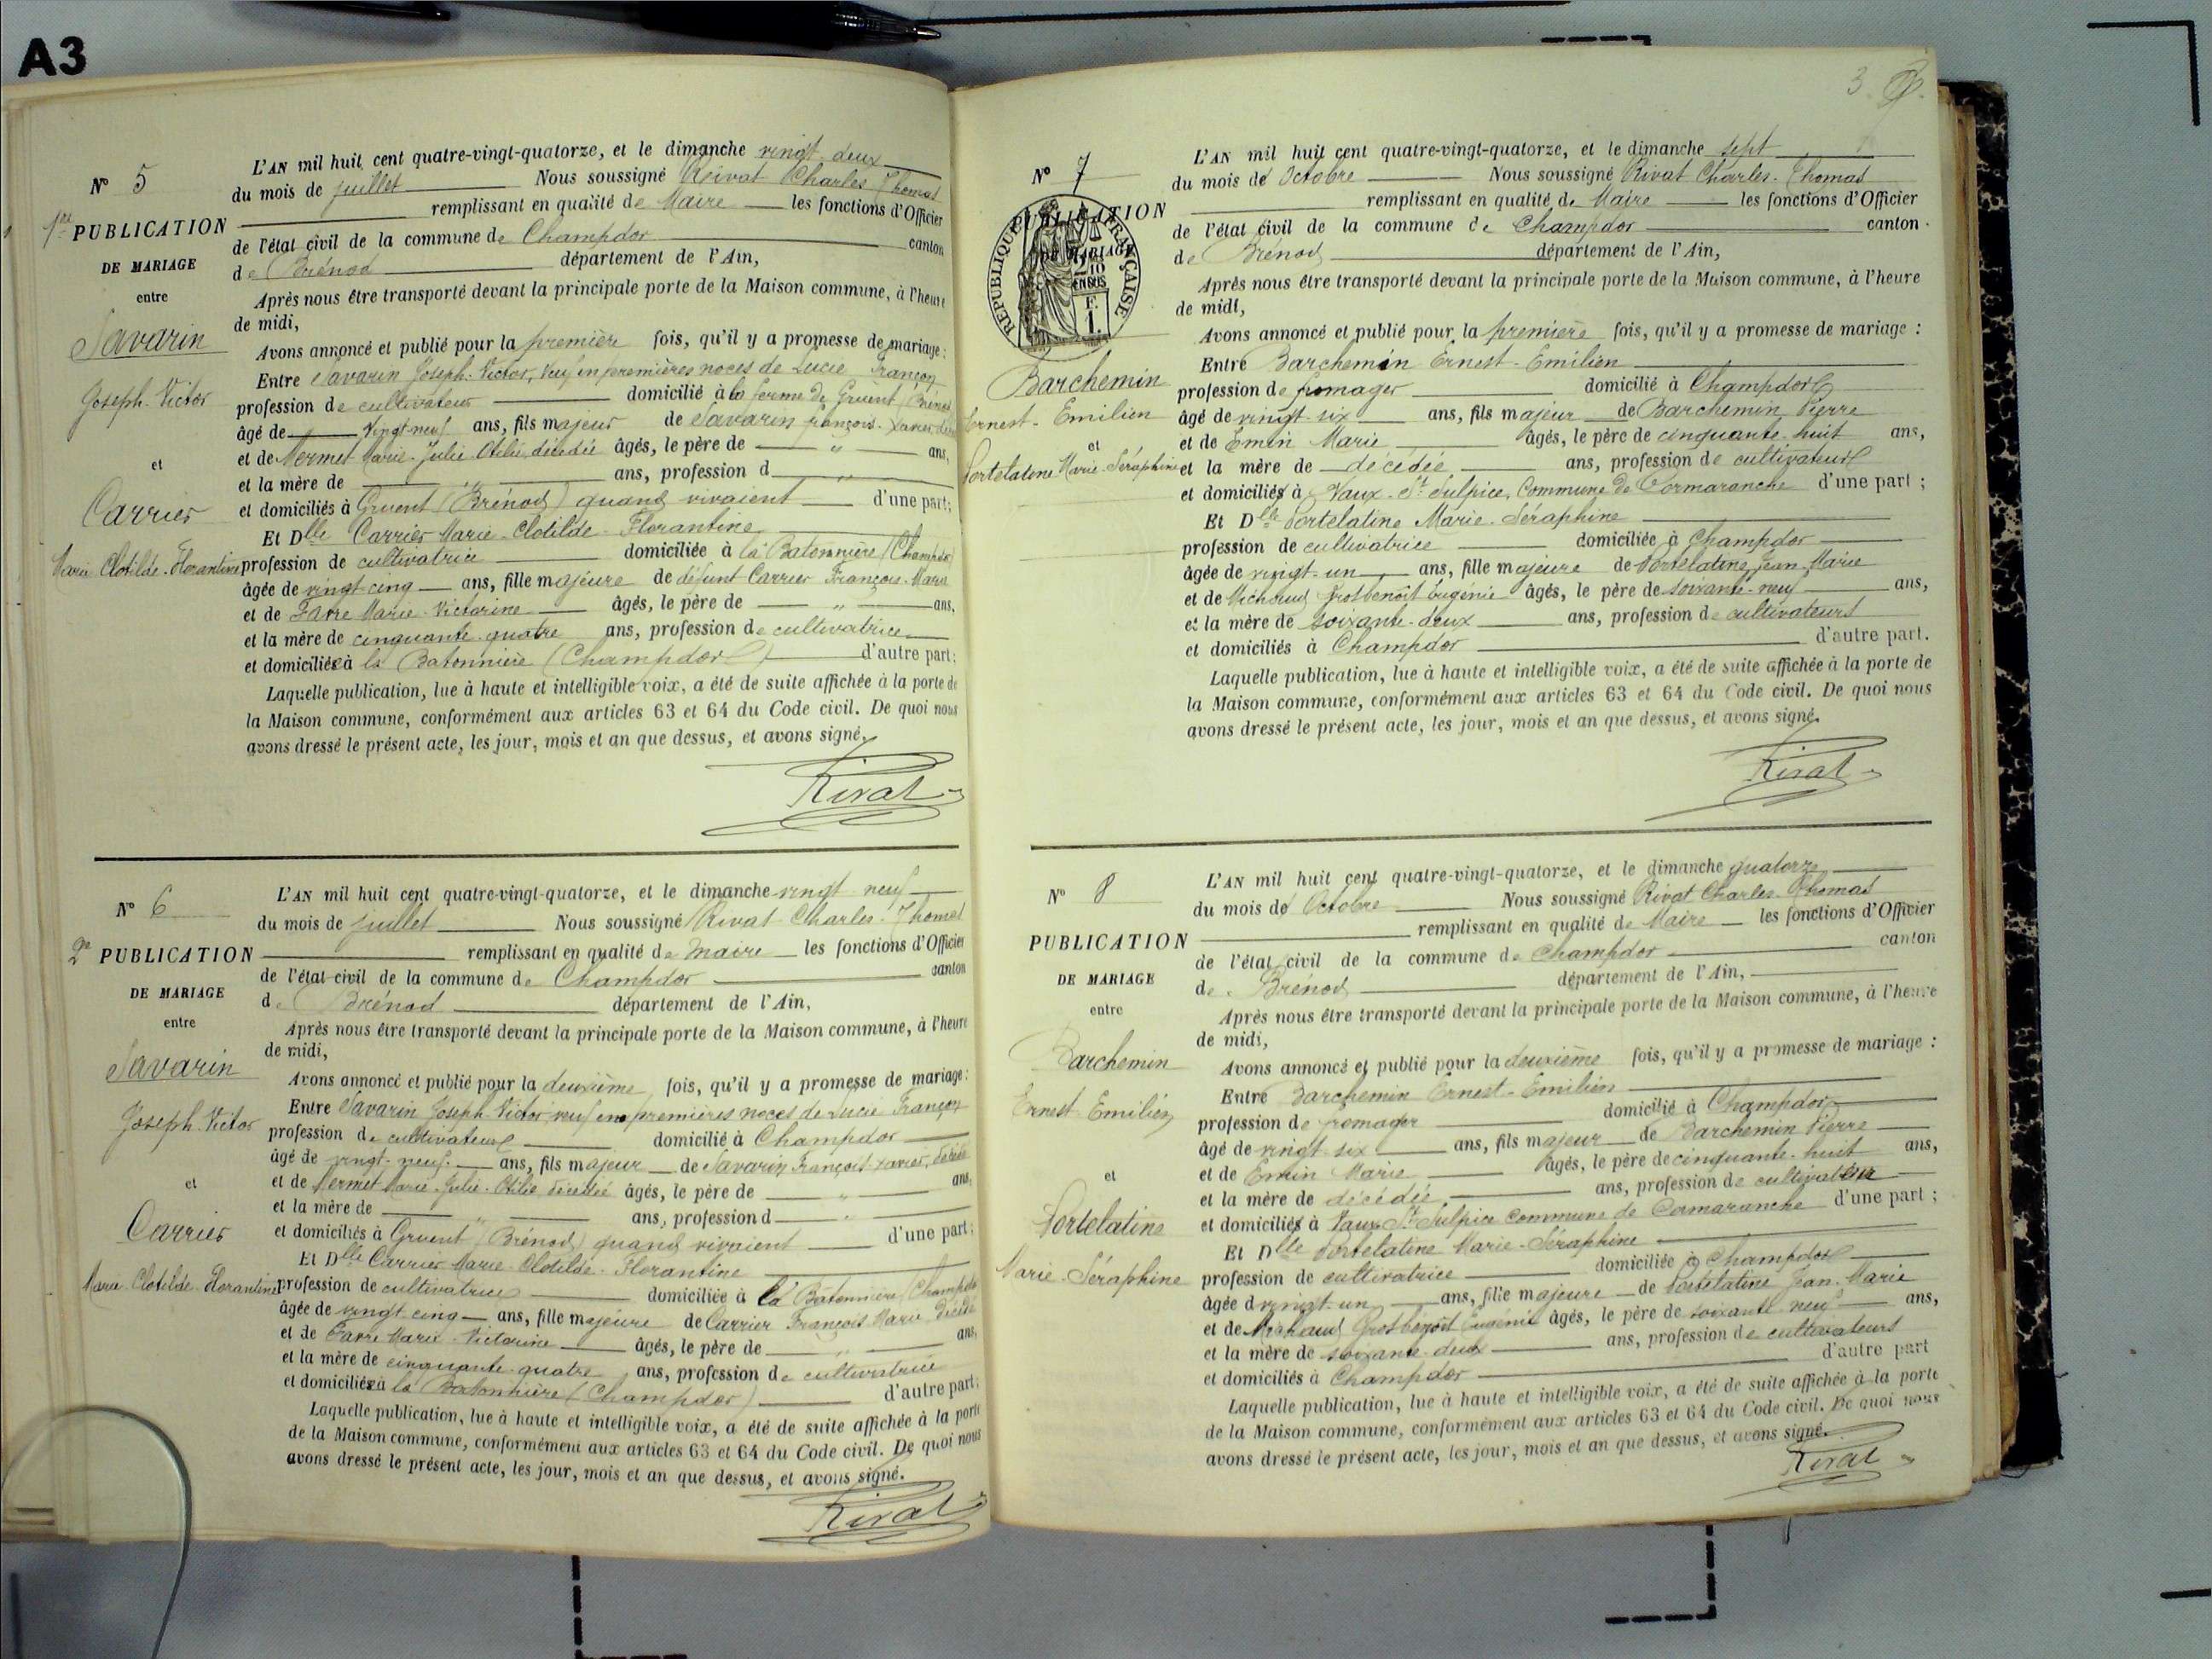 A3
N° 5
1re PUBLICATION
DE MARIAGE
entre
Savarin
Joseph-Victor
et
Carrier
Marie Clotilde-Florantine
L'AN mil huit cent quatre-vingt-quatorze, et le dimanche vingt deux
du mois de juillet Nous soussigné Rivat Charles Thomas
remplissant en qualité de Maire les fonctions d'Officier
de l'état civil de la commune de Champdor canton
de Brénod département de l'Ain,
Après nous être transporté devant la principale porte de la Maison commune, à l'heure
de midi,
Avons annoncé et publié pour la première fois, qu'il y a promesse de mariage:
Entre Savarin Joseph-Victor, Veuf en premières noces de Lucie Françon
profession de cultivateur domicilié à la ferme de Gruent (Brénod
âgé de vingt-neuf ans, fils majeur de Savarin François-Xavier
et de Mermet Marie-Julie-Otilie, décédée âgés, le père de " ans,
et la mère de " ans, profession d "
et domiciliés à Gruent (Brénod) quand vivaient d'une part;
Et Dlle Carrier Marie-Clotilde-Florantine
profession de cultivatrice domiciliée à la Batonnière (Champdor)
âgée de vingt cinq ans, fille majeure de défunt Carrier François-Marie
et de Favre Marie-Victorine âgés, le père de " ans,
et la mère de cinquante-quatre ans, profession de cultivatrice
et domiciliée à la Batonnière (Champdor) d'autre part;
Laquelle publication, lue à haute et intelligible voix, a été de suite affichée à la porte de
la Maison commune, conformément aux articles 63 et 64 du Code civil. De quoi nous
avons dressé le présent acte, les jour, mois et an que dessus, et avons signé.
Rivat
N° 6
2e PUBLICATION
DE MARIAGE
entre
Savarin
Joseph-Victor
et
Carrier
Marie-Clotilde-Florantine
L'AN mil huit cent quatre-vingt-quatorze, et le dimanche vingt neuf
du mois de juillet Nous soussigné Rivat Charles-Thomas
remplissant en qualité de maire les fonctions d'Officier
de l'état civil de la commune de Champdor canton
de Brénod département de l'Ain,
Après nous être transporté devant la principale porte de la Maison commune, à l'heure
de midi,
Avons annoncé et publié pour la deuxième fois, qu'il y a promesse de mariage:
Entre Savarin Joseph-Victor veuf en premières noces de Lucie Françon
profession de cultivateur domicilié à Champdor
âgé de vingt-neuf ans, fils majeur de Savarin François-Xavier, décédé
et de Mermet Marie-Julie-Otilie décédée âgés, le père de " ans,
et la mère de " ans, profession d "
et domiciliés à Gruent (Brénod) quand vivaient d'une part;
Et Dlle Carrier Marie-Clotilde-Florantine
profession de cultivatrice domiciliée à la Batonnière (Champdor
âgée de vingt cinq ans, fille majeure de Carrier François Marie décédé
et de Favre Marie-Victorine âgés, le père de " ans,
et la mère de cinquante-quatre ans, profession de cultivatrice
et domiciliée à la Batonnière (Champdor) d'autre part;
Laquelle publication, lue à haute et intelligible voix, a été de suite affichée à la porte
de la Maison commune, conformément aux articles 63 et 64 du Code civil. De quoi nous
avons dressé le présent acte, les jour, mois et an que dessus, et avons signé.
Rivat
3
N° 7
PUBLICATION
DE MARIAGE
REPUBLIQUE FRANÇAISE
2/10
EN SUS
F.
1.
Barchemin
Ernest-Emilien
et
Portelatine Marie-Séraphine
L'AN mil huit cent quatre-vingt-quatorze, et le dimanche sept
du mois de Octobre Nous soussigné Rivat Charles-Thomas
remplissant en qualité de Maire les fonctions d'Officier
de l'état civil de la commune de Champdor canton
de Brénod département de l'Ain,
Après nous être transporté devant la principale porte de la Maison commune, à l'heure
de midi,
Avons annoncé et publié pour la première fois, qu'il y a promesse de mariage :
Entre Barchemin Ernest-Emilien
profession de fromager domicilié à Champdor
âgé de vingt-six ans, fils majeur de Barchemin Pierre
et de Emin Marie âgés, le père de cinquante-huit ans,
et la mère de décédée ans, profession de cultivateur
et domiciliés à Vaux-St Sulpice, Commune de Cormaranche d'une part ;
Et Dlle Portelatine Marie-Séraphine
profession de cultivatrice domiciliée à Champdor
âgée de vingt-un ans, fille majeure de Portelatine Jean-Marie
et de Michaud Grosbenoit Eugénie âgés, le père de soixante-neuf ans,
et la mère de soixante-deux ans, profession de cultivateurs
et domiciliés à Champdor d'autre part.
Laquelle publication, lue à haute et intelligible voix, a été de suite affichée à la porte de
la Maison commune, conformément aux articles 63 et 64 du Code civil. De quoi nous
avons dressé le présent acte, les jour, mois et an que dessus, et avons signé.
Rivat
N° 8
PUBLICATION
DE MARIAGE
entre
Barchemin
Ernest Emilien
et
Portelatine
Marie-Séraphine
L'AN mil huit cent quatre-vingt-quatorze, et le dimanche quatorze
du mois de Octobre Nous soussigné Rivat Charles-Thomas
remplissant en qualité de Maire les fonctions d'Officier
de l'état civil de la commune de Champdor canton
de Brénod département de l'Ain,
Après nous être transporté devant la principale porte de la Maison commune, à l'heure
de midi,
Avons annoncé et publié pour la deuxième fois, qu'il y a promesse de mariage :
Entre Barchemin Ernest-Emilien
profession de fromager domicilié à Champdor
âgé de vingt six ans, fils majeur de Barchemin Pierre
et de Emin Marie âgés, le père de cinquante-huit ans,
et la mère de décédée ans, profession de cultivateur
et domiciliés à Vaux-St Sulpice commune de Cormaranche d'une part ;
Et Dlle Portelatine Marie-Séraphine
profession de cultivatrice domiciliée à Champdor
âgée d vingt-un ans, fille majeure de Portelatine Jean-Marie
et de Michaud Grosbenoit Eugénie âgés, le père de soixante-neuf ans,
et la mère de soixante-deux ans, profession de cultivateurs
et domiciliés à Champdor d'autre part
Laquelle publication, lue à haute et intelligible voix, a été de suite affichée à la porte
de la Maison commune, conformément aux articles 63 et 64 du Code civil. De quoi nous
avons dressé le présent acte, les jour, mois et an que dessus, et avons signé.
Rivat